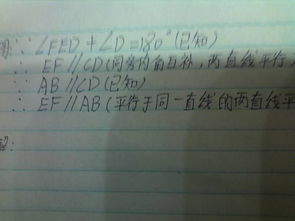 明:∵∠FED+∠D=180°(已知)
∴EF//CD(同旁内角互补,两直线平行)
∵AB//CD(已知)
∴EF//AB(平行于同一直线的两直线平